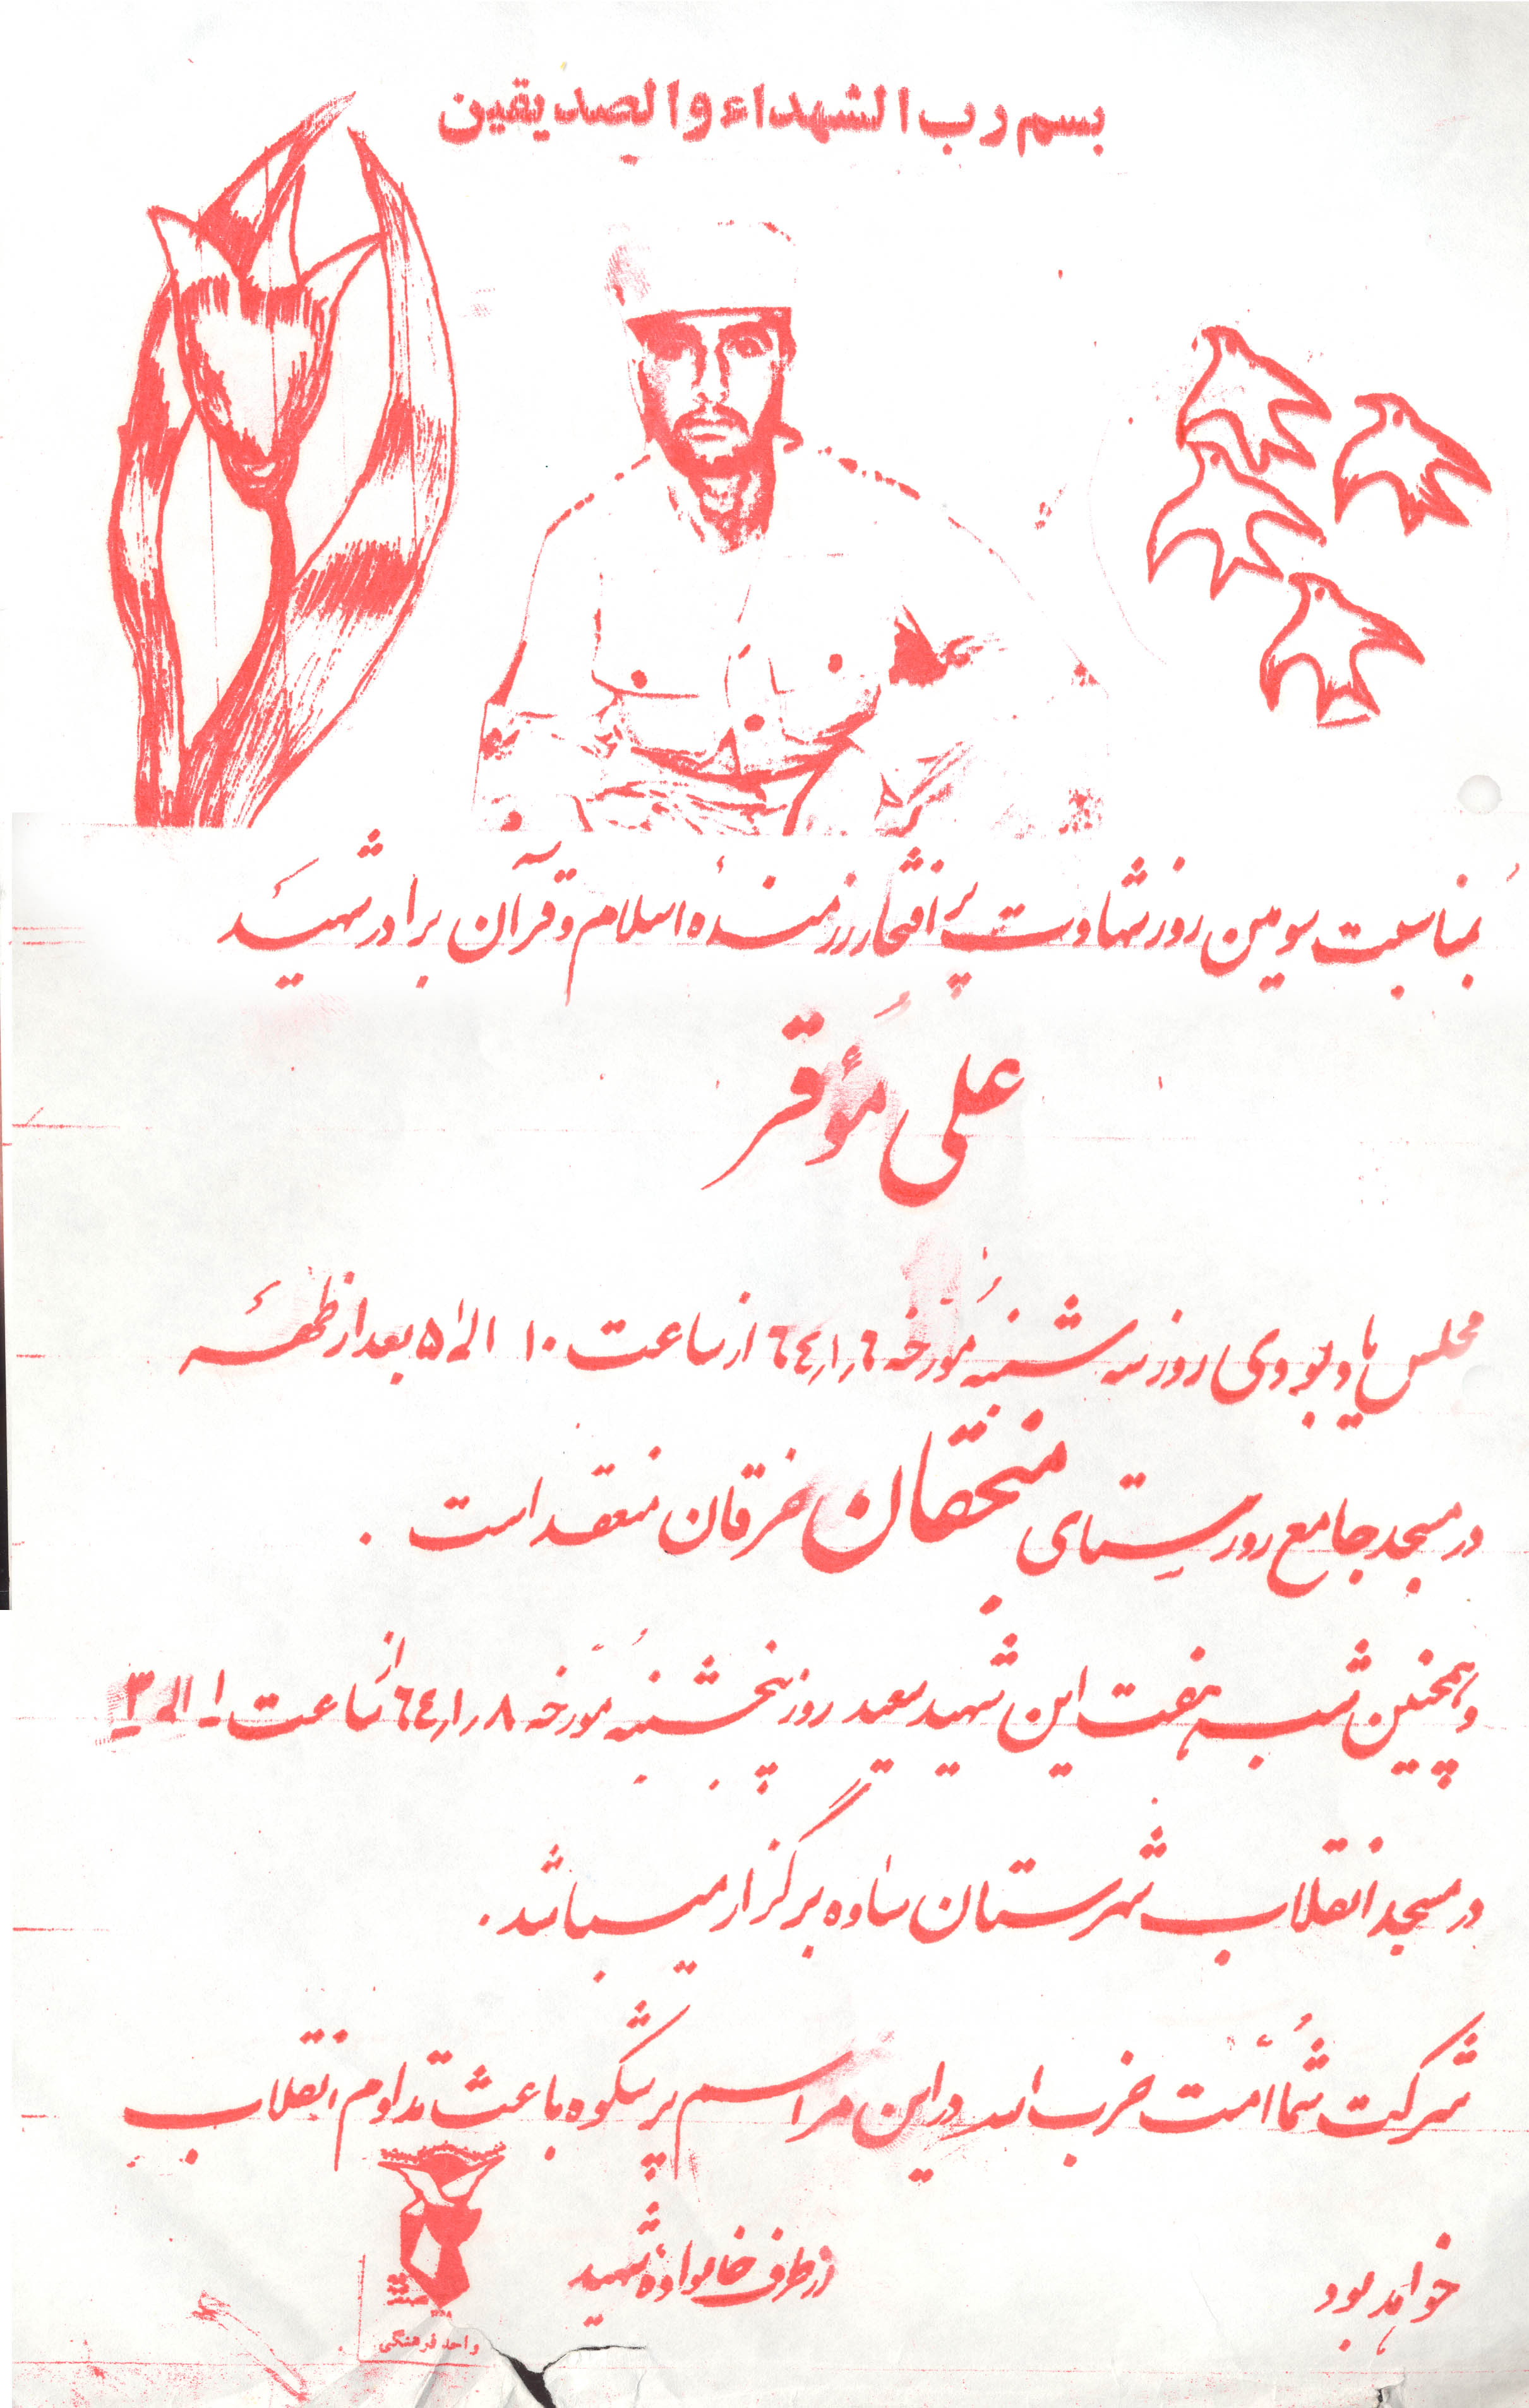 بسم رب الشهداء والصدیقین
بمناسبت سومین روز شهادت پر افتخار رزمنده اسلام و قرآن برادر شهید
علی مؤقر
مجلس یادبودی روز سه شنبه مورخه ٦٤٫١٫٦ از ساعت ١٠ الی ۵ بعد از ظهر
در مسجد جامع روستای منحقان خرقان منعقد است .
و همچنین شب هفت این شهید سعید روز پنجشنبه مورخه ٦٤٫١٫٨ از ساعت ١ الی ٣
در مسجد انقلاب شهرستان ساوه برگزار میباشد .
شرکت شما امت حزب الله در این مراسم پرشکوه باعث تداوم انقلاب
خواهد بود
از طرف خانواده شهید
واحد فرهنگی